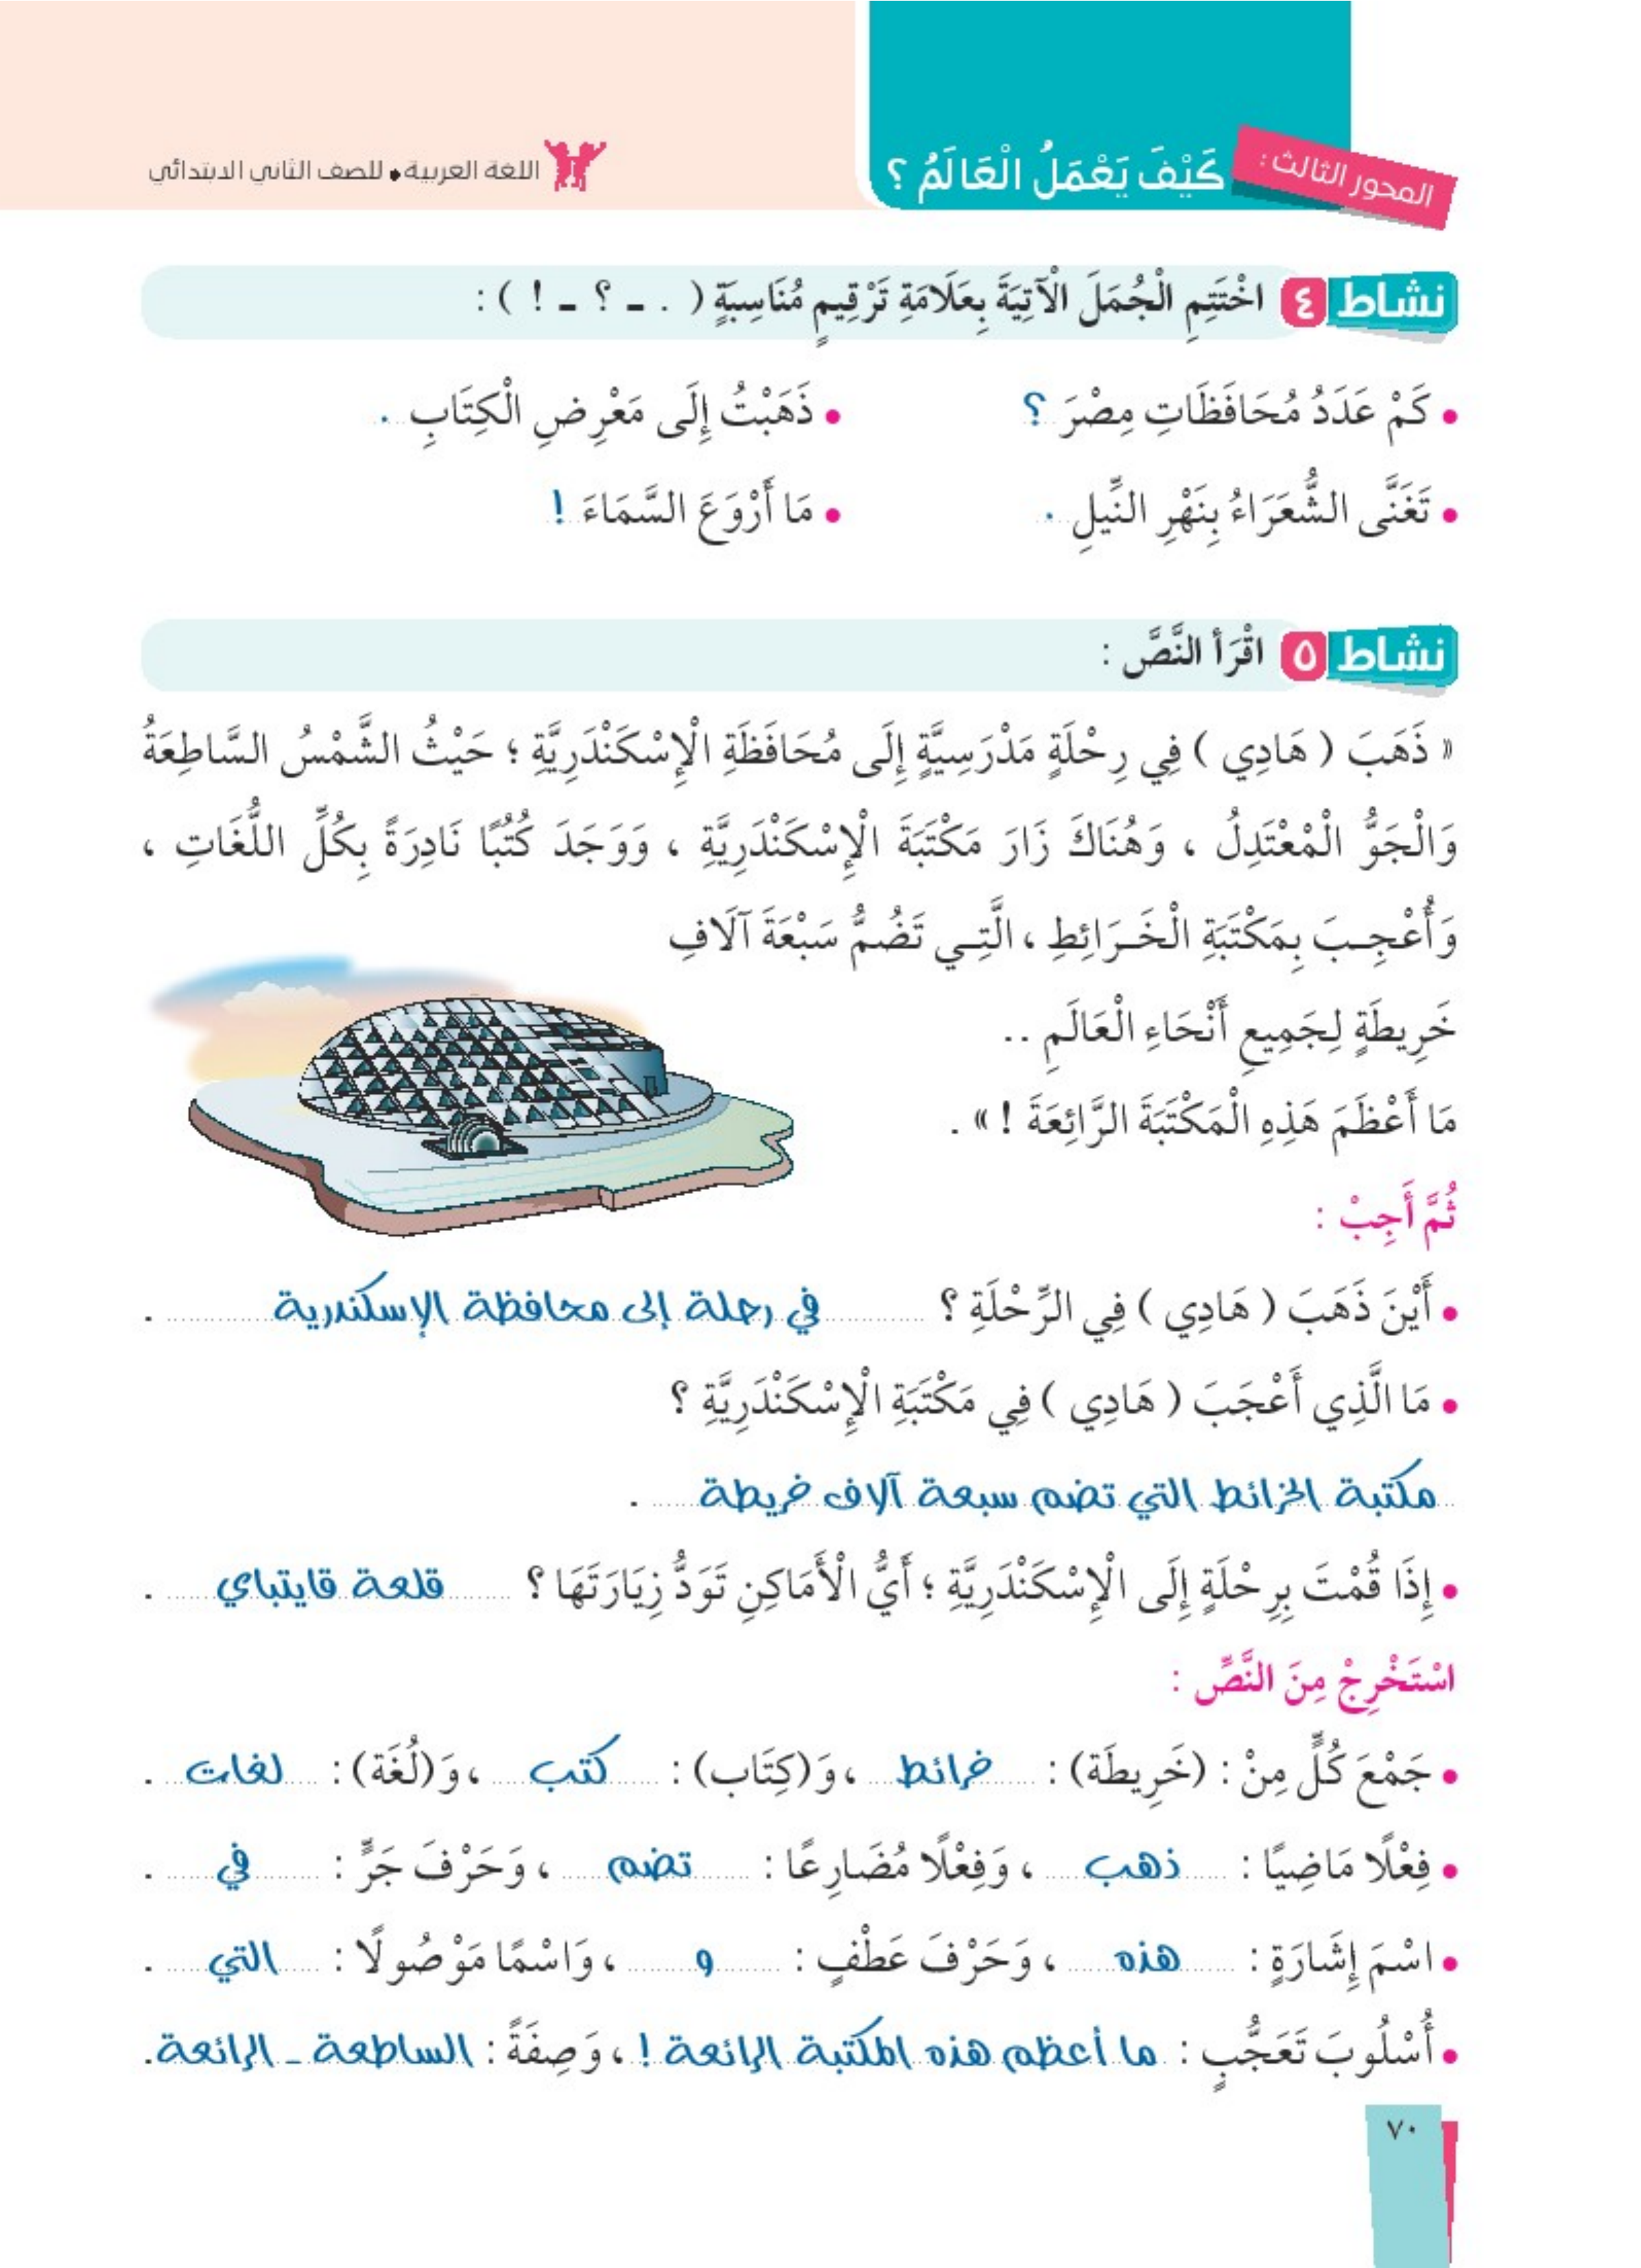 المحور الثالث :
كَيْفَ يَعْمَلُ الْعَالَمُ ؟
اللغة العربية • للصف الثاني الابتدائي
نشاط ٤ اخْتَتِمِ الْجُمَلَ الْآتِيَةَ بِعَلَامَةِ تَرْقِيمٍ مُنَاسِبَةٍ ( . ـ ؟ ـ ! ) :
• كَمْ عَدَدُ مُحَافَظَاتِ مِصْرَ ؟ • ذَهَبْتُ إِلَى مَعْرِضِ الْكِتَابِ .
• تَغَنَّى الشُّعَرَاءُ بِنَهْرِ النِّيلِ . • مَا أَرْوَعَ السَّمَاءَ !
نشاط ٥ اقْرَأ النَّصَّ :
« ذَهَبَ ( هَادِي ) فِي رِحْلَةٍ مَدْرَسِيَّةٍ إِلَى مُحَافَظَةِ الْإِسْكَنْدَرِيَّةِ ؛ حَيْثُ الشَّمْسُ السَّاطِعَةُ
وَالْجَوُّ الْمُعْتَدِلُ ، وَهُنَاكَ زَارَ مَكْتَبَةَ الْإِسْكَنْدَرِيَّةِ ، وَوَجَدَ كُتُبًا نَادِرَةً بِكُلِّ اللُّغَاتِ ،
وَأُعْجِبَ بِمَكْتَبَةِ الْخَرَائِطِ ، الَّتِي تَضُمُّ سَبْعَةَ آلَافِ
خَرِيطَةٍ لِجَمِيعِ أَنْحَاءِ الْعَالَمِ ..
مَا أَعْظَمَ هَذِهِ الْمَكْتَبَةَ الرَّائِعَةَ ! » .
ثُمَّ أَجِبْ :
• أَيْنَ ذَهَبَ ( هَادِي ) فِي الرِّحْلَةِ ؟ في رحلة إلى محافظة الإسكندرية .
• مَا الَّذِي أَعْجَبَ ( هَادِي ) فِي مَكْتَبَةِ الْإِسْكَنْدَرِيَّةِ ؟
مكتبة الخرائط التي تضم سبعة آلاف خريطة .
• إِذَا قُمْتَ بِرِحْلَةٍ إِلَى الْإِسْكَنْدَرِيَّةِ ؛ أَيُّ الْأَمَاكِنِ تَوَدُّ زِيَارَتَهَا ؟ قلعة قايتباي .
اسْتَخْرِجْ مِنَ النَّصِّ :
• جَمْعَ كُلٍّ مِنْ : (خَرِيطَة) : خرائط ، وَ(كِتَاب) : كتب ، وَ(لُغَة) : لغات .
• فِعْلًا مَاضِيًا : ذهب ، وَفِعْلًا مُضَارِعًا : تضم ، وَحَرْفَ جَرٍّ : في .
• اسْمَ إِشَارَةٍ : هذه ، وَحَرْفَ عَطْفٍ : و ، وَاسْمًا مَوْصُولًا : التي .
• أُسْلُوبَ تَعَجُّبٍ : ما أعظم هذه المكتبة الرائعة ! ، وَصِفَةً : الساطعة ـ الرائعة.
٧٠